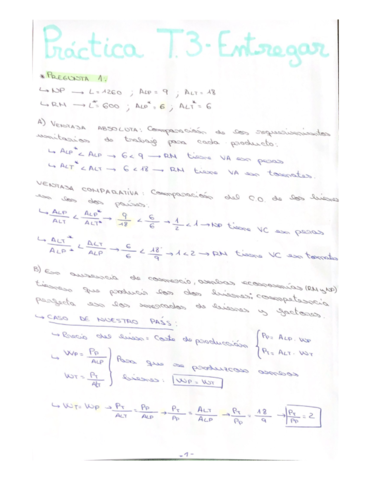 Práctica T.3 - Entregar
PREGUNTA 1:
↳ NP → L = 1260 ; ALP = 9 ; ALT = 18
↳ RM → L* = 600 ; ALP* = 6 ; ALT* = 6
A) VENTAJA ABSOLUTA: Comparación de los requerimientos
unitarios de trabajo para cada producto:
↳ ALP* < ALP → 6 < 9 → RM tiene VA en papas
↳ ALT* < ALT → 6 < 18 → RM tiene VA en tomates.
VENTAJA COMPARATIVA: Comparación del CO de los bienes
en los dos países.
↳ ALP/ALT < ALP*/ALT* → 9/18 < 6/6 → 1/2 < 1 → NP tiene VC en papas
↳ ALT*/ALP* < ALT/ALP → 6/6 < 18/9 → 1 < 2 → RM tiene VC en tomates
B) En ausencia de comercio, ambas economías (RM y NP)
tienen que producir los dos bienes: competencia
perfecta en los mercados de bienes y factores.
↳ CASO DE NUESTRO PAÍS:
↳ Precio del bien = Coste de producción { Pp = ALP · WP
PT = ALT · WT
↳ WP = Pp/ALP
WT = PT/ALT } Para que se produzcan ambos
bienes: WP = WT
↳ WT = WP → PT/ALT = Pp/ALP → PT/Pp = ALT/ALP → PT/Pp = 18/9 → PT/Pp = 2
-1-